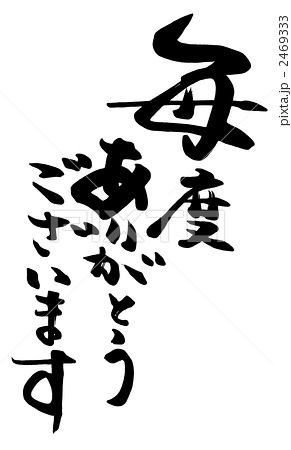 毎度
ありがとう
ございます
PIXTA
pixta.jp - 2469333